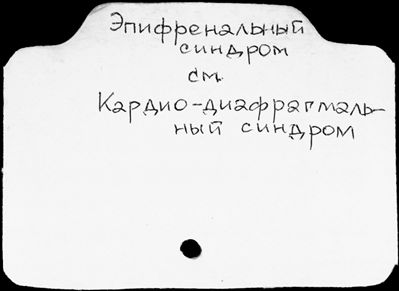 Эпифренальный
синдром
см.
Кардио-диафрагмаль-
ный синдром